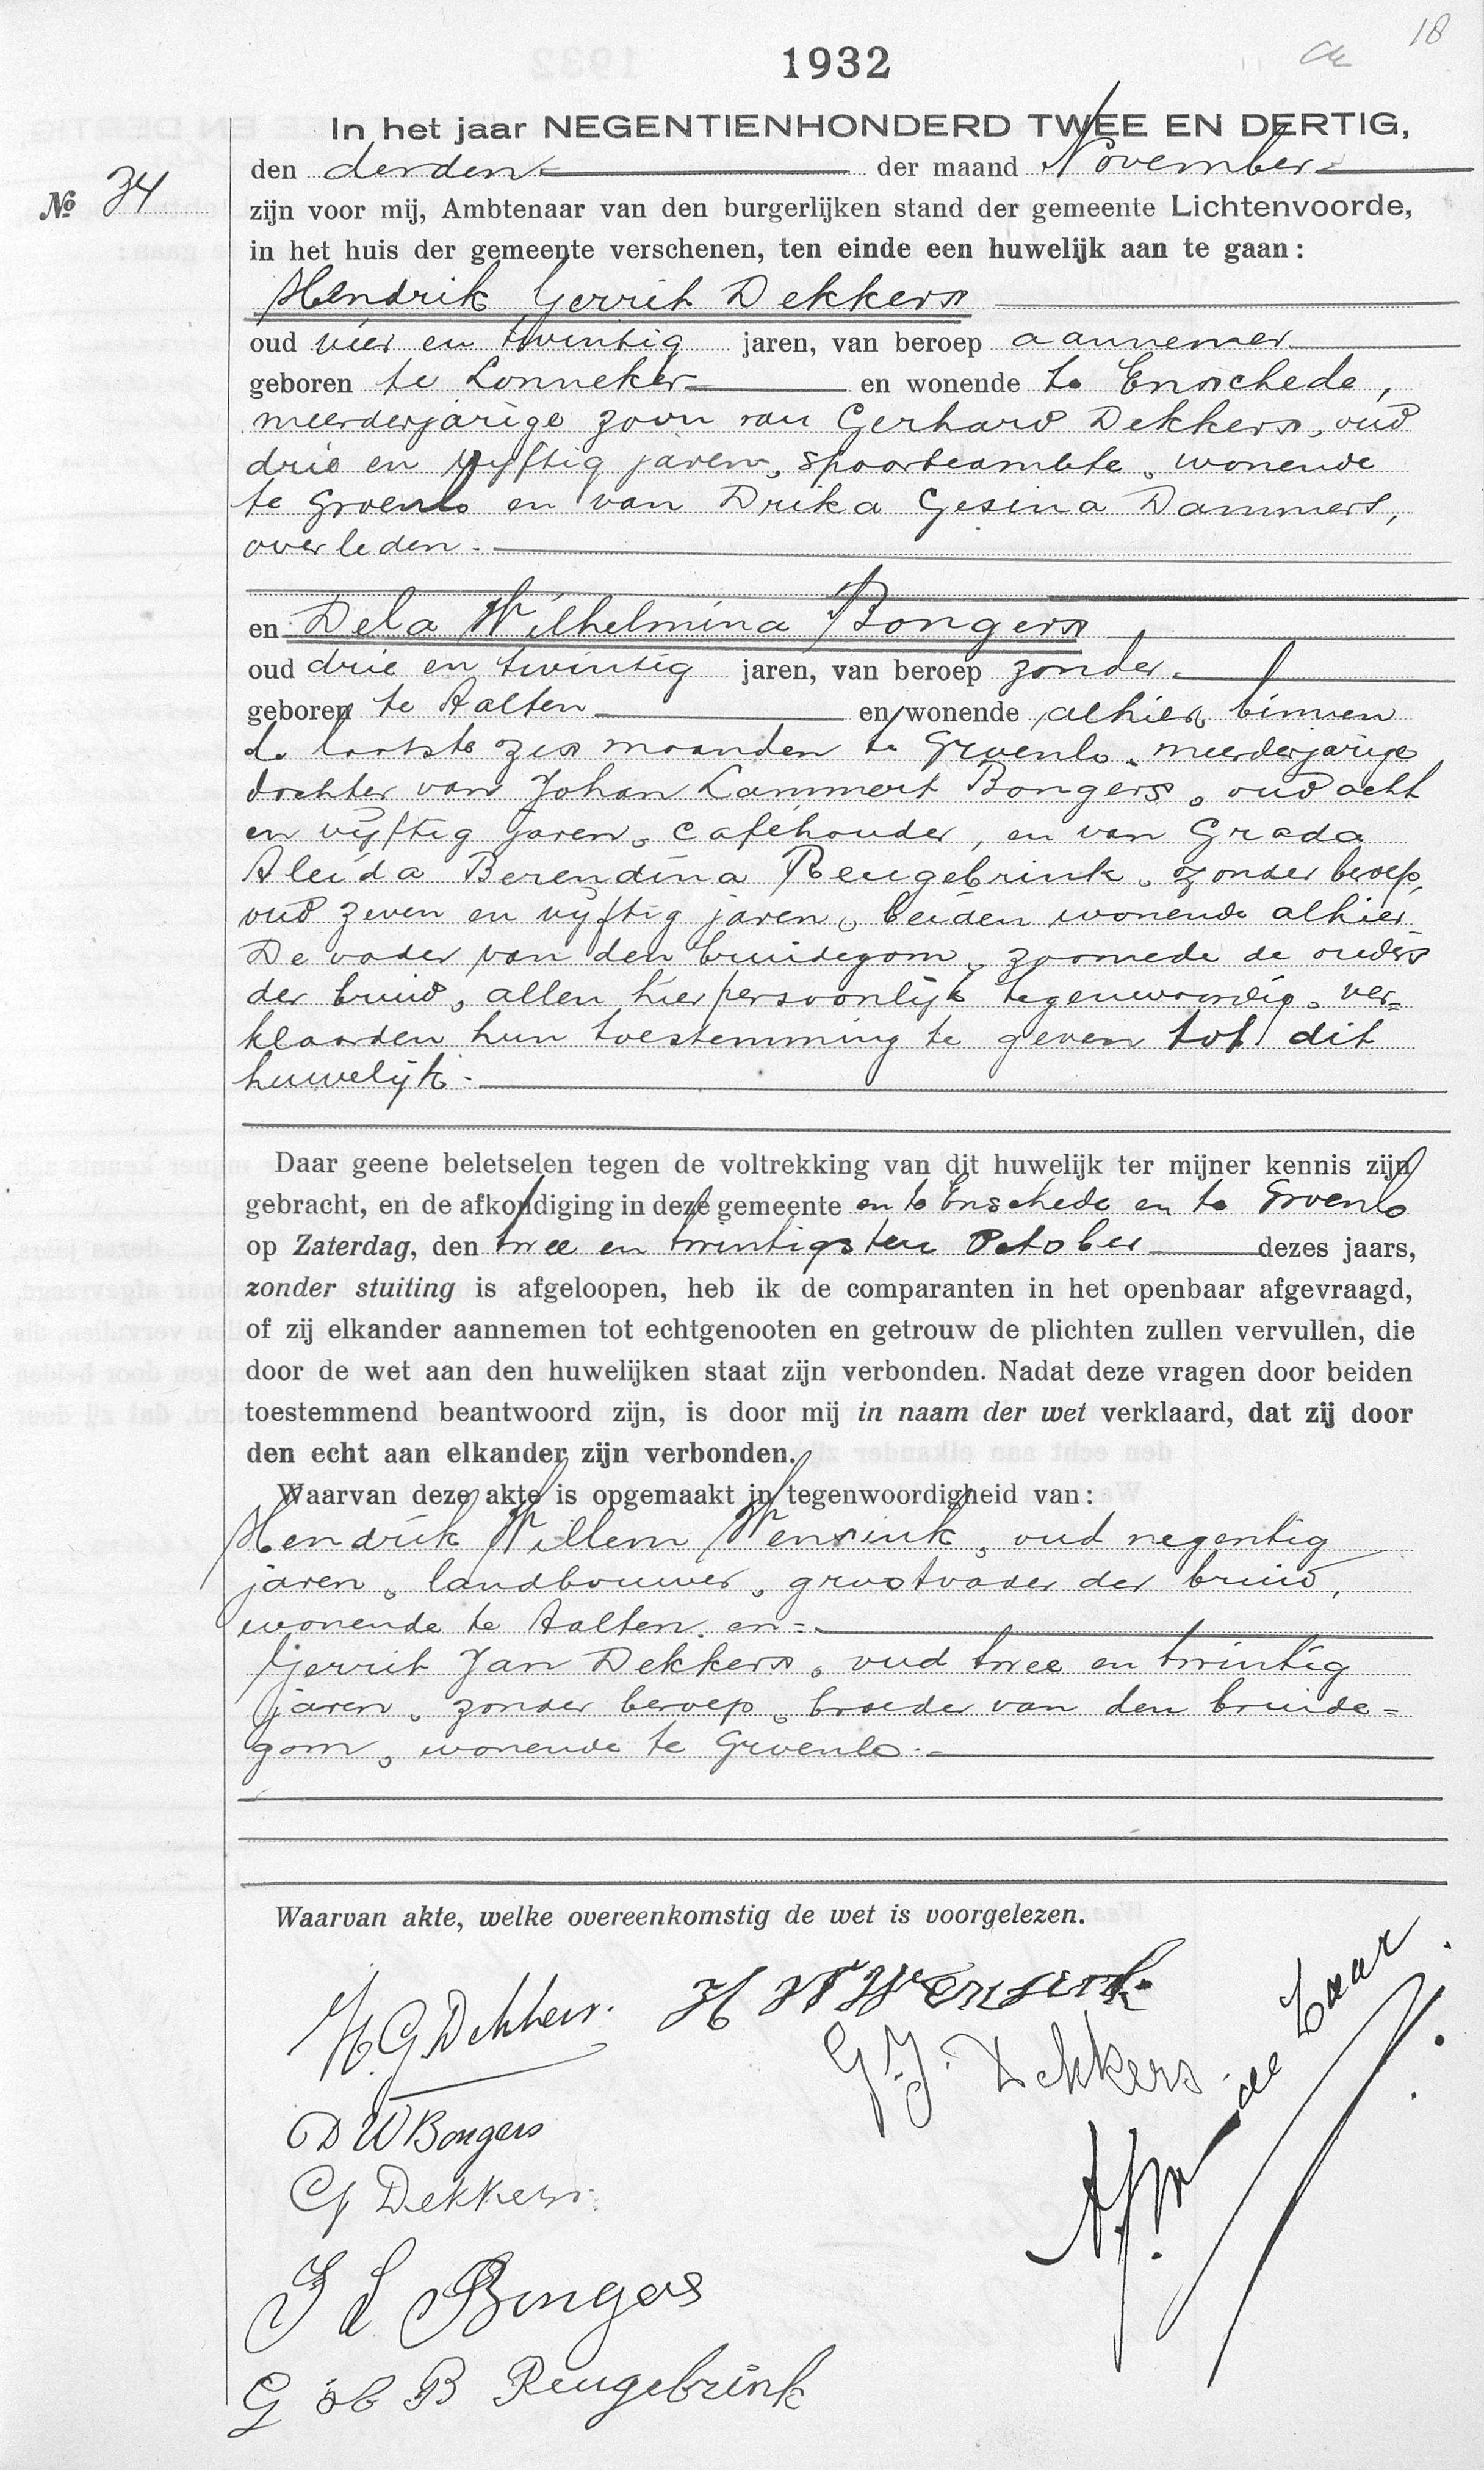 18
1932
In het jaar NEGENTIENHONDERD TWEE EN DERTIG,
den derden der maand November
No 34
zijn voor mij, Ambtenaar van den burgerlijken stand der gemeente Lichtenvoorde,
in het huis der gemeente verschenen, ten einde een huwelijk aan te gaan:
Hendrik Gerrit Dekkers
oud vier en twintig jaren, van beroep aannemer
geboren te Lonneker en wonende te Enschede,
meerderjarige zoon van Gerhard Dekkers, oud
drie en vijftig jaren, spoorbeambte, wonende
te Groenlo en van Drika Gesina Dammers,
overleden.
en Dela Wilhelmina Bongers
oud drie en twintig jaren, van beroep zonder
geboren te Aalten en wonende alhier, binnen
de laatste zes maanden te Groenlo, meerderjarige
dochter van Johan Lammert Bongers, oud acht
en vijftig jaren, caféhouder, en van Grada
Aleida Berendina Reugebrink, zonder beroep,
oud zeven en vijftig jaren, beiden wonende alhier.
De vader van den bruidegom, zoomede de ouders
der bruid, allen hier persoonlijk tegenwoordig, ver=
klaarden hun toestemming te geven tot dit
huwelijk.
Daar geene beletselen tegen de voltrekking van dit huwelijk ter mijner kennis zijn
gebracht, en de afkondiging in deze gemeente en te Enschede en te Groenlo
op Zaterdag, den twee en twintigsten October dezes jaars,
zonder stuiting is afgeloopen, heb ik de comparanten in het openbaar afgevraagd,
of zij elkander aannemen tot echtgenooten en getrouw de plichten zullen vervullen, die
door de wet aan den huwelijken staat zijn verbonden. Nadat deze vragen door beiden
toestemmend beantwoord zijn, is door mij in naam der wet verklaard, dat zij door
den echt aan elkander zijn verbonden.
Waarvan deze akte is opgemaakt in tegenwoordigheid van:
Hendrik Willem Wensink, oud negentig
jaren, landbouwer, grootvader der bruid,
wonende te Aalten, en =
Gerrit Jan Dekkers, oud twee en twintig
jaren, zonder beroep, broeder van den bruide=
gom, wonende te Groenlo.
Waarvan akte, welke overeenkomstig de wet is voorgelezen.
H.G. Dekkers. H W Wensink
G.J. Dekkers.
de Laar
D W Bongers
G Dekkers.
J L Bongers
G a B Reugebrink